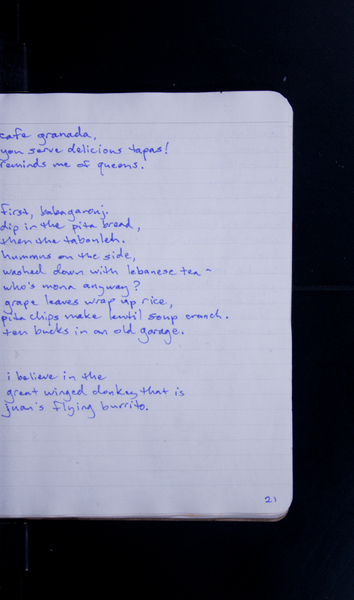 cafe granada,
you serve delicious tapas!
reminds me of queens.
first, babaganouj.
dip in the pita bread,
then the tabouleh.
hummus on the side,
washed down with lebanese tea –
who's mona anyway?
grape leaves wrap up rice,
pita chips make lentil soup crunch.
ten bucks in an old garage.
i believe in the
great winged donkey that is
juan's flying burrito.
21